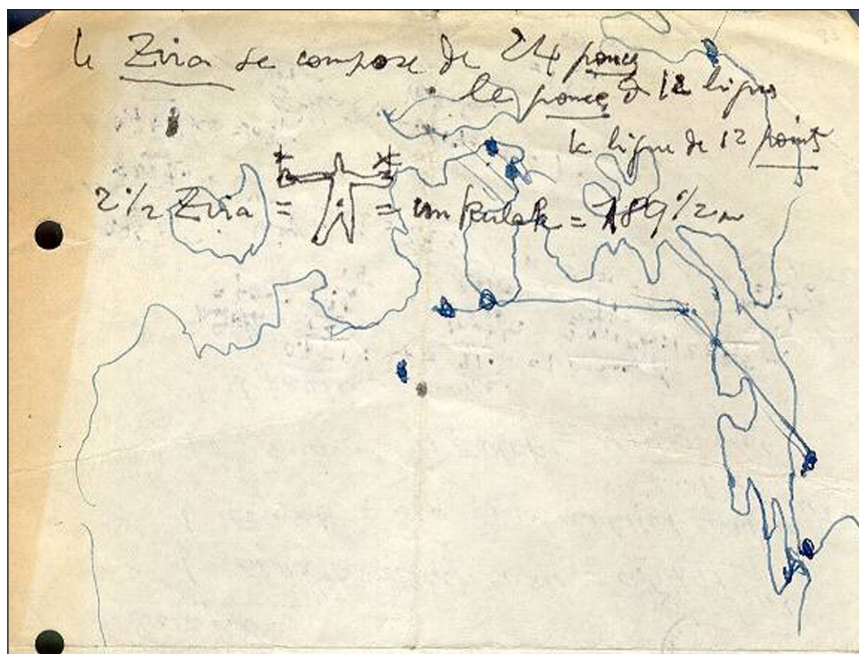 le Zira se compose de 24 pouces
le pouce de 12 lignes
la ligne de 12 points
2 1/2 Zira = = un kulak = 189 1/2 m